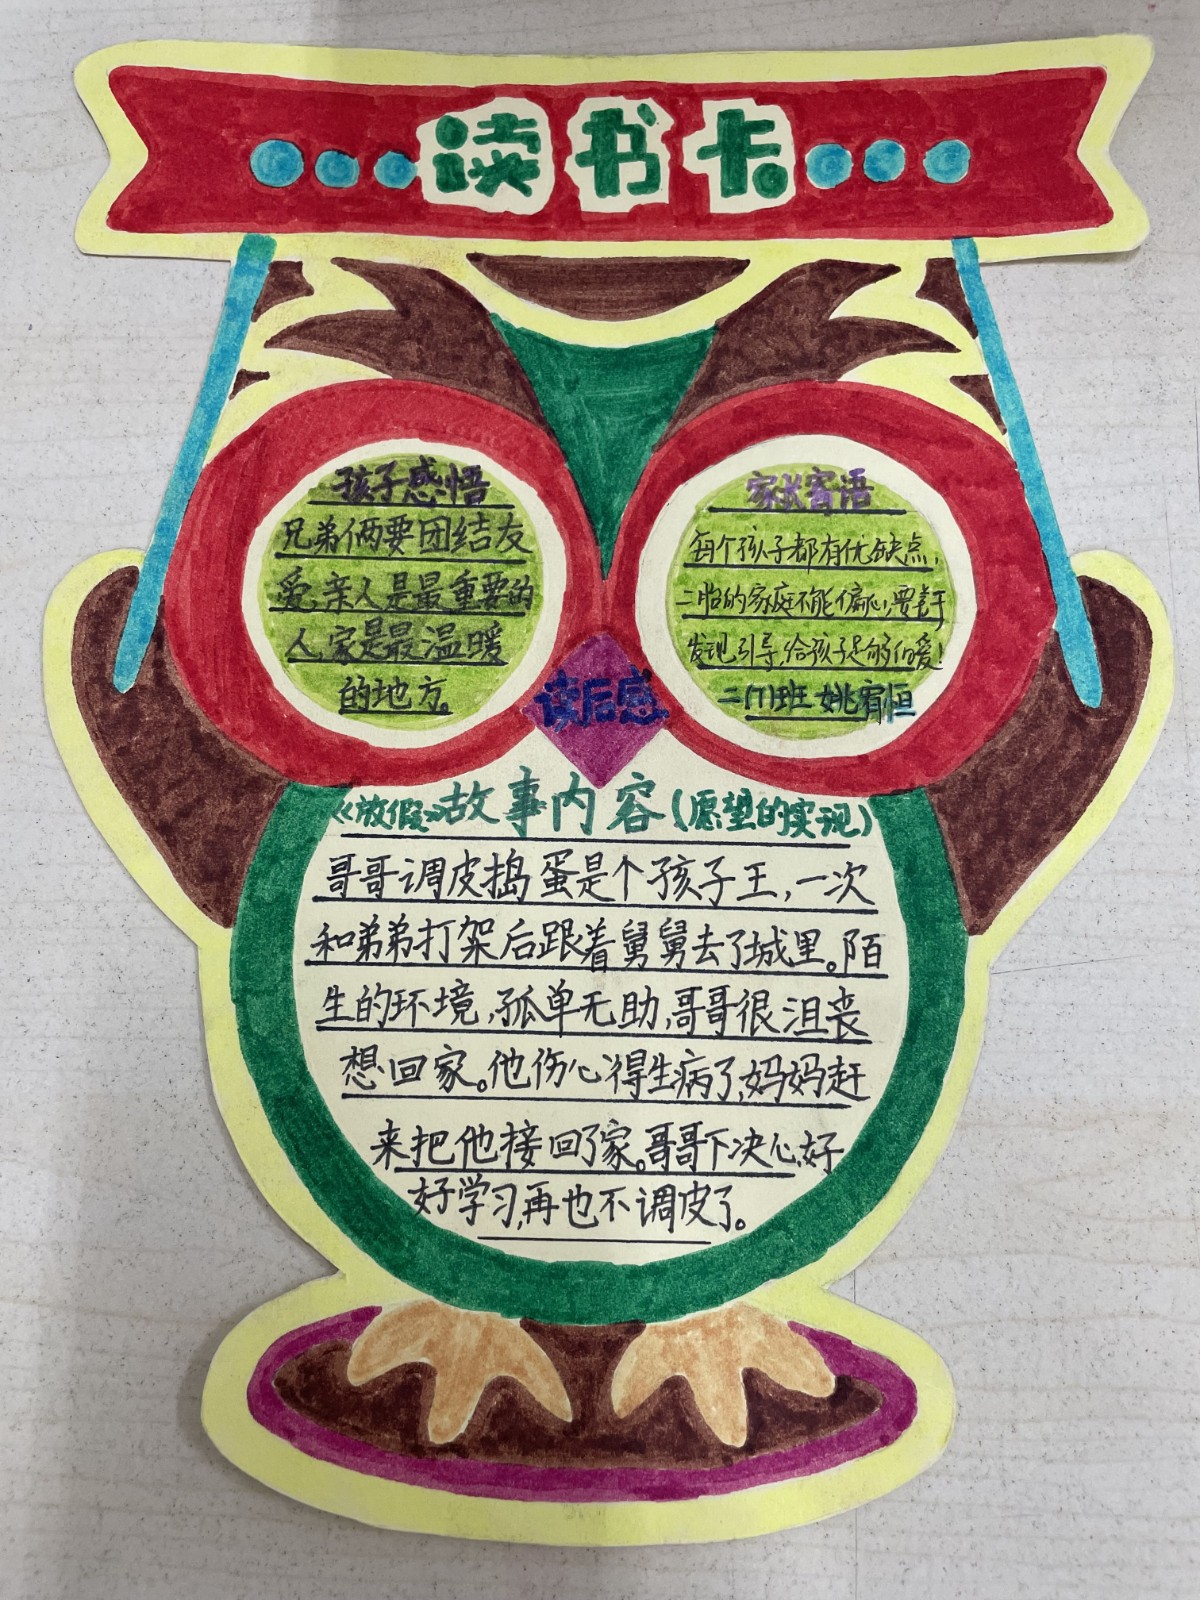 读书卡
孩子感悟
兄弟俩要团结友
爱,亲人是最重要的
人,家是最温暖
的地方。
家长寄语
每个孩子都有优缺点,
二胎的家庭不能偏心,要善于
发现引导,给孩子足够的爱!
二(7)班 姚宥恒
读后感
《放假》故事内容(愿望的实现)
哥哥调皮捣蛋是个孩子王,一次
和弟弟打架后跟着舅舅去了城里。陌
生的环境,孤单无助,哥哥很沮丧
想回家。他伤心得生病了,妈妈赶
来把他接回了家。哥哥下决心,好
好学习,再也不调皮了。